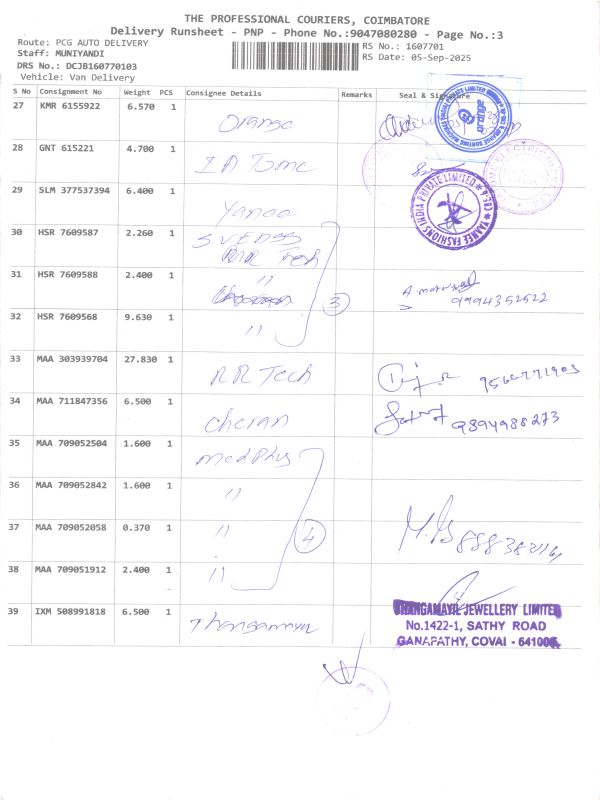 THE PROFESSIONAL COURIERS, COIMBATORE
Delivery Runsheet - PNP - Phone No.:9047080280 - Page No.:3
Route: PCG AUTO DELIVERY
RS No.: 1607701
Staff: MUNIYANDI
RS Date: 05-Sep-2025
DRS No.: DCJB160770103
Vehicle: Van Delivery
S No Consignment No Weight PCS Consignee Details Remarks Seal & Signature
27 KMR 6155922 6.570 1 Orange
28 GNT 615221 4.700 1
29 SLM 377537394 6.400 1 Yanee
YAANEE FASHIONS INDIA PRIVATE LIMITED
30 HSR 7609587 2.260 1
RR Tech
31 HSR 7609588 2.400 1 " 3
9994352522
32 HSR 7609568 9.630 1 "
33 MAA 303939704 27.830 1 RR Tech
34 MAA 711847356 6.500 1 Cheran 9894988273
35 MAA 709052504 1.600 1 medplus
36 MAA 709052842 1.600 1 "
37 MAA 709052058 0.370 1 " 4
38 MAA 709051912 2.400 1 "
39 IXM 508991818 6.500 1 Thangamayil
THANGAMAYIL JEWELLERY LIMITED
No.1422-1, SATHY ROAD
GANAPATHY, COVAI - 641006.